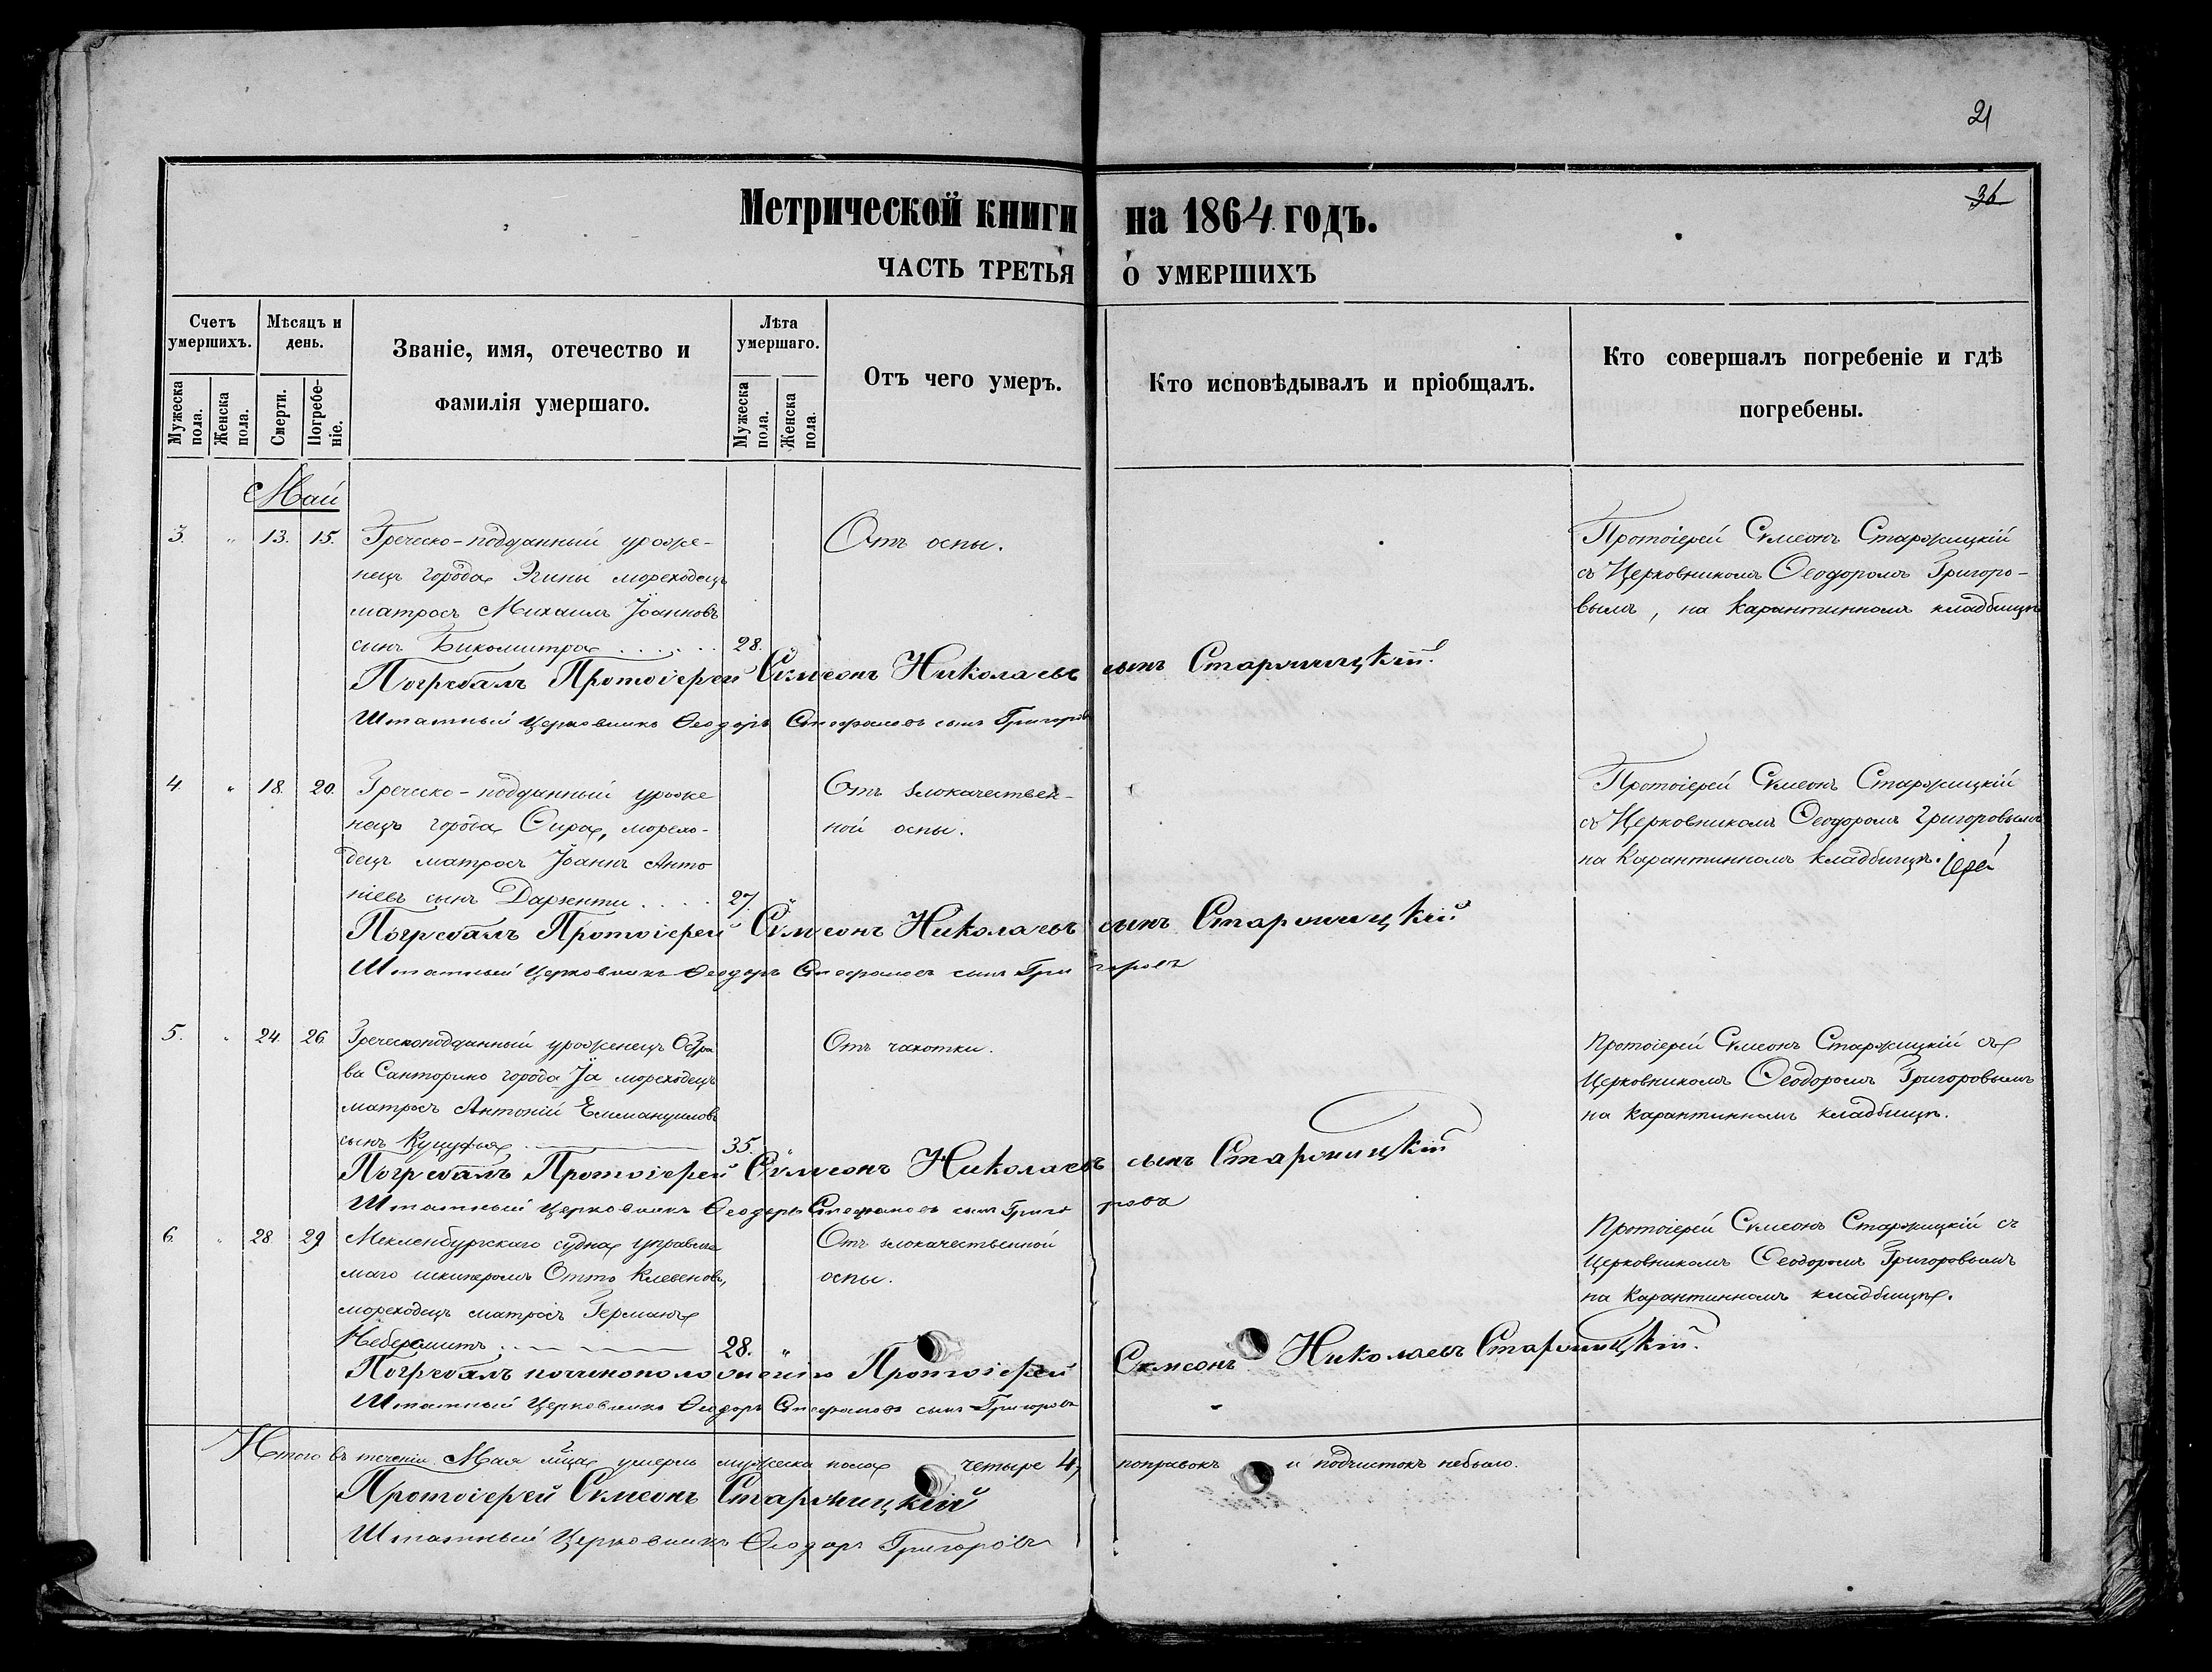 21
36
Метрической книги на 1864 годъ.
ЧАСТЬ ТРЕТЬЯ О УМЕРШИХЪ
Счетъ умершихъ.
Мужеска пола.
Женска пола.
Мѣсяцъ и день.
Смерти.
Погребеніе.
Званіе, имя, отечество и
фамилія умершаго.
Лѣта умершаго.
Мужеска пола.
Женска пола.
Отъ чего умеръ.
Кто исповѣдывалъ и пріобщалъ.
Кто совершалъ погребеніе и гдѣ
погребены.
Май
3. " 13. 15. Греческо-подданный уроже-
нецъ города Эгины мореходецъ
матросъ Михаилъ Іоанновъ
сынъ Бикомитра . . . . . 28.
Отъ оспы.
Протоіерей Сѵмеонъ Старжицкій
съ Церковникомъ Ѳеодоромъ Григоро-
вымъ, на Карантинномъ кладбищѣ
Погребалъ Протоіерей Сѵмеонъ Николаевъ сынъ Старжицкій.
Штатный Церковникъ Ѳеодоръ Стефановъ сынъ Григоровъ
4. " 18. 20. Греческо-подданный уроже
нецъ города Сира, морехо-
децъ матросъ Іоаннъ Анто
ніевъ сынъ Даркенти . . . . 27.
Отъ злокачествен-
ной оспы.
Протоіерей Сѵмеонъ Старжицкій
съ Церковникомъ Ѳеодоромъ Григоровымъ
на Карантинномъ кладбищѣ.
Погребалъ Протоіерей Сѵмеонъ Николаевъ сынъ Старжицкій
Штатный Церковникъ Ѳеодоръ Стефановъ сынъ Григоровъ
5. " 24. 26 Греческоподданный уроженецъ Остро
ва Санторино города Іа мореходецъ
матросъ Антоній Еммануиловъ
сынъ Куцуфья 35.
Отъ чахотки.
Протоіерей Сѵмеонъ Старжицкій съ
Церковникомъ Ѳеодоромъ Григоровымъ
на Карантинномъ кладбищѣ.
Погребалъ Протоіерей Сѵмеонъ Николаевъ сынъ Старжицкій
Штатный Церковникъ Ѳеодоръ Стефановъ сынъ Григоровъ
6. " 28 29 Мекленбургскаго судна управляе
маго шкиперомъ Отто Клевеновъ,
мореходецъ матросъ Германъ
28. "
Отъ злокачественной
оспы.
Протоіерей Сѵмеонъ Старжицкій съ
Церковникомъ Ѳеодоромъ Григоровымъ
на Карантинномъ кладбищѣ.
Погребалъ по чиноположенію Протоіерей Сѵмеонъ Николаевъ Старжицкій.
Штатный Церковникъ Ѳеодоръ Стефановъ сынъ Григоровъ
Итого въ теченіи Мая мѣца умерло мужеска пола четыре 4, поправокъ и подчистокъ небыло.
Протоіерей Сѵмеонъ Старжицкій
Штатный Церковникъ Ѳеодоръ Григоровъ